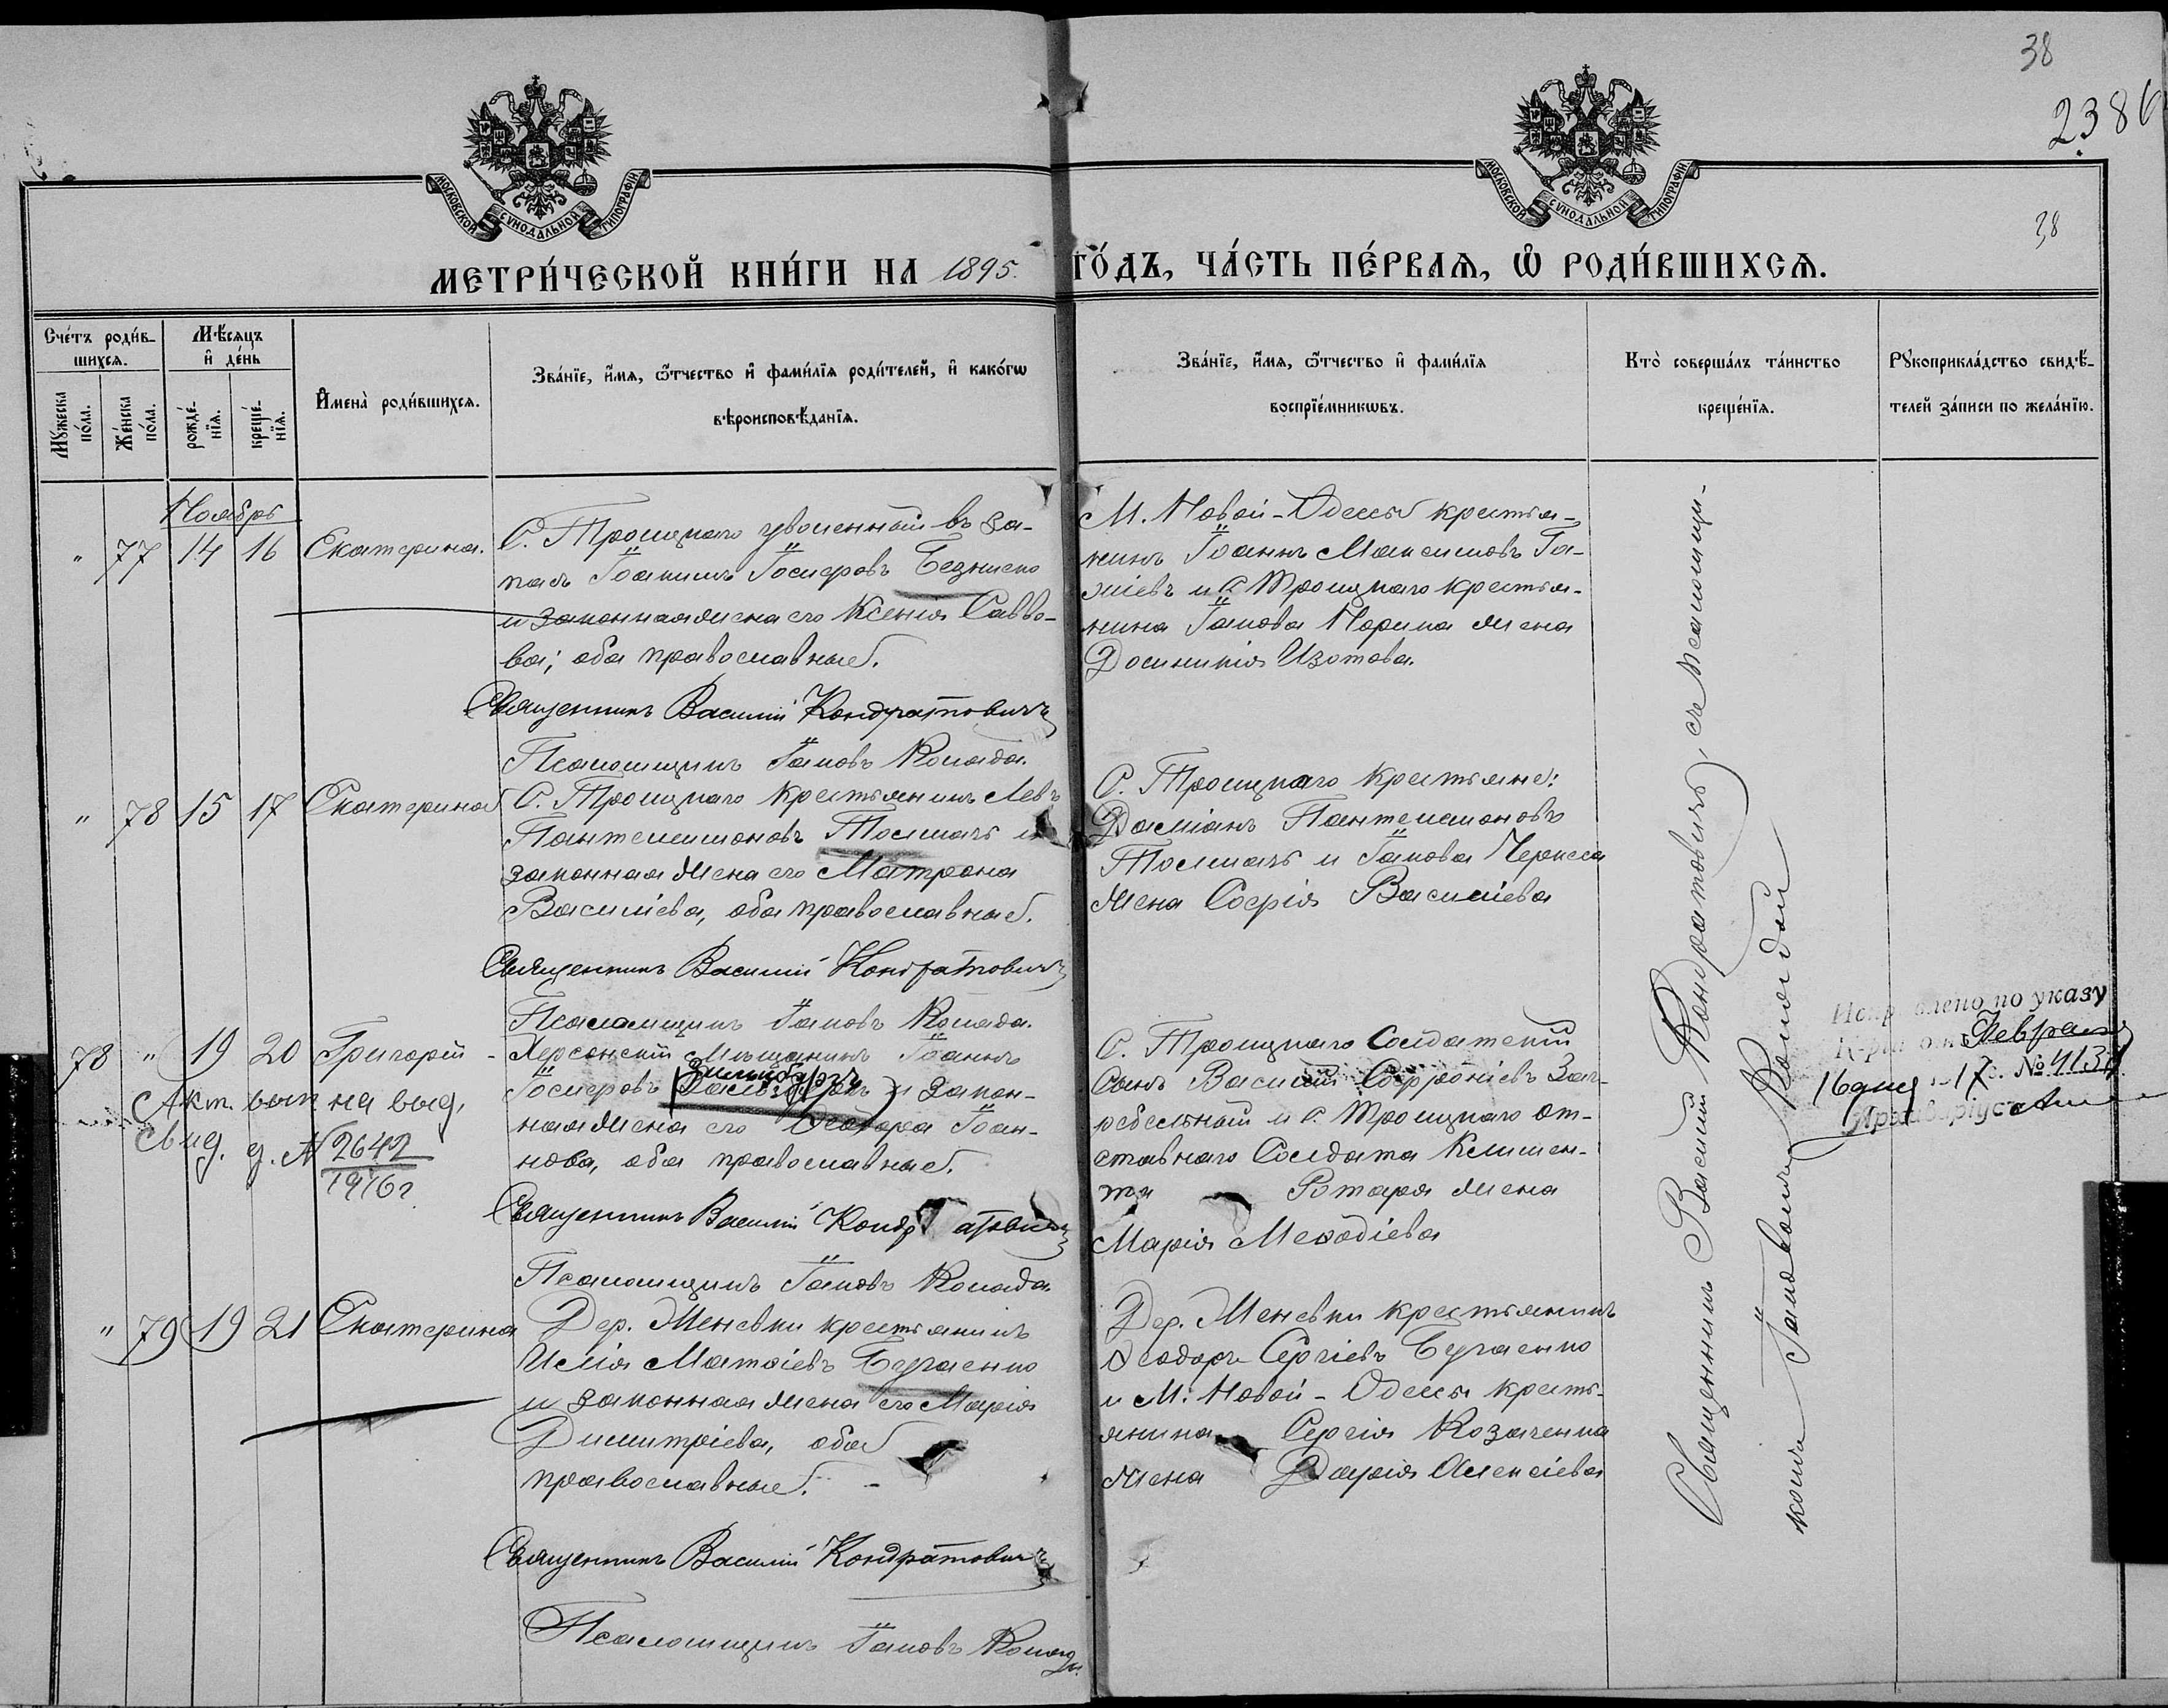 38
2386
38
МОСКОВСКОЙ СѴНОДАЛЬНОЙ ТИПОГРАФІИ
МОСКОВСКОЙ СѴНОДАЛЬНОЙ ТИПОГРАФІИ
МЕТРИ́ЧЕСКОЙ КНИ́ГИ НА 1895. ГО́ДЪ, ЧА́СТЬ ПЕ́РВАѦ, Ѡ҆ РОДИ́ВШИХСѦ.
Сче́тъ роди́в-
шихсѧ.
Мꙋ́жеска по́ла.
Же́нска по́ла.
Мѣ́сѧцъ
и҆ де́нь
рожде́-
нїѧ.
креще́-
нїѧ.
И҆мена̀ роди́вшихсѧ.
Зва́нїе, и҆́мѧ, ѻ҆́тчество и҆ фами́лїѧ роди́телей, и҆ како́гѡ
вѣроисповѣ́данїѧ.
Зва́нїе, и҆́мѧ, ѻ҆́тчество и҆ фами́лїѧ
воспрїе́мникѡвъ.
Кто̀ соверша́лъ та́инство
креще́нїѧ.
Рꙋкоприкла́дство свидѣ́-
телей за́писи по жела́нїю.
Ноябрь
" 77 14 16 Екатерина.
С. Троицкаго уволенный въ за-
пасъ Іоакимъ Іосифовъ
и законная жена его Ксенія Савво-
ва; оба православные.
Священникъ Василій Кондратовичъ
Псаломщикъ Іаковъ Коляда.
М. Новой-Одессы крестья-
нинъ Іоаннъ Максимовъ Га-
жіевъ и С. Троицкаго крестья-
нина Іакова жена
Домникія Изотова.
" 78 15 17 Екатерина
С. Троицкаго крестьянинъ Левъ
Пантелимоновъ Толмачъ и
законная жена его Матрона
Василіева, оба православные.
Священникъ Василій Кондратовичъ
Псаломщикъ Іаковъ Коляда.
С. Троицкаго крестьяне:
Даміанъ Пантелимоновъ
Толмачъ и Іакова Черкеса
жена Софія Василіева
78 " 19 20 Григорій
Акт. вып на выд.
свид. д. № 2642
1916 г
Херсонскій мѣщанинъ Іоаннъ
Іосифовъ и закон-
ная жена его Ѳеодора Іоан-
нова, оба православные.
Священникъ Василій Кондратовичъ
Псаломщикъ Іаковъ Коляда
С. Троицкаго Солдатскій
Сынъ Василій Софроніевъ Заг-
ребельный и С. Троицкаго от-
ставного Солдата Климен-
та Ротаря жена
Марія Меѳодіева
Исправлено по указу
Февраля
16 дня 17 г. № 4134
Архиваріусъ
" 79 19 21 Екатерина
Дер. Меневки крестьянинъ
Илія Матѳіевъ Бугаенко
и законная жена его Марія
Димитріева, оба
православные.
Священникъ Василій Кондратовичъ
Псаломщикъ Іаковъ Коляда
Дер. Меневки крестьянинъ
Ѳеодоръ Сергіевъ Бугаенко
и М. Новой-Одессы кресть-
янина Сергія Козаченка
жена Дарія Алексіева
Священникъ Василій Кондратовичъ, съ псаломщи-
комъ Іаковомъ Колядой